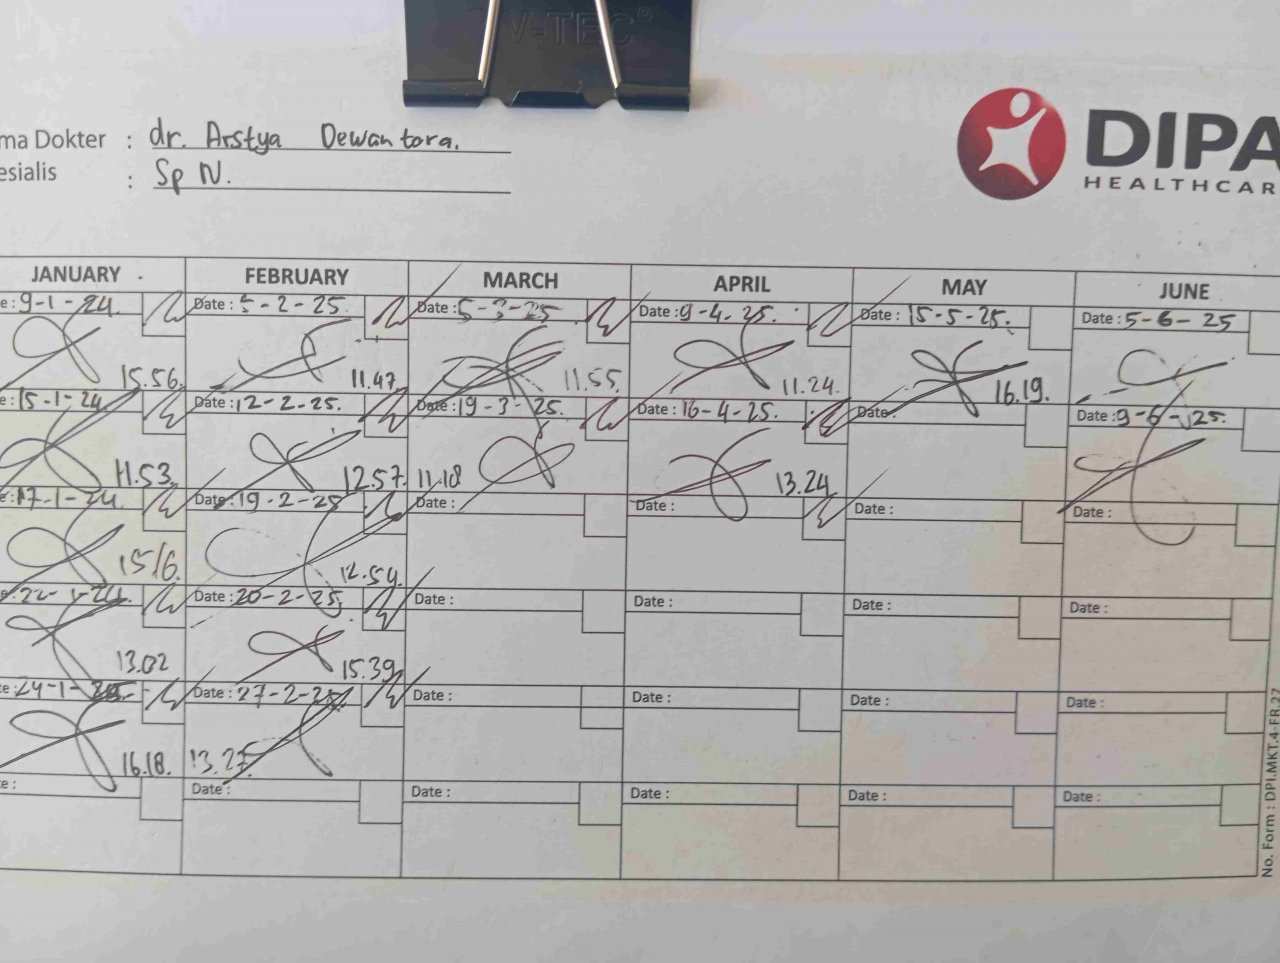 V-TEC
ma Dokter : dr. Arstya Dewantora.
esialis : Sp N.
DIPA
HEALTHCAR
JANUARY FEBRUARY MARCH APRIL MAY JUNE
e : 9-1-24. Date : 5-2-25. Date : 5-3-25. Date : 9-4-25. Date : 15-5-25. Date : 5-6-25
15.56. 11.47. 11.55. 11.24. 16.19.
e : 15-1-24 Date : 12-2-25. Date : 19-3-25. Date : 16-4-25. Date : Date : 9-6-25.
11.53. 12.57. 11.18 13.24
e : 17-1-24. Date : 19-2-25 Date : Date : Date : Date :
1516. 12.54.
e : 22-1-24. Date : 20-2-25. Date : Date : Date : Date :
13.02 15.39
e : 24-1-25. Date : 27-2-25. Date : Date : Date : Date :
16.18. 13.27.
e : Date : Date : Date : Date : Date :
No. Form : DPI.MKT.4-FR.27